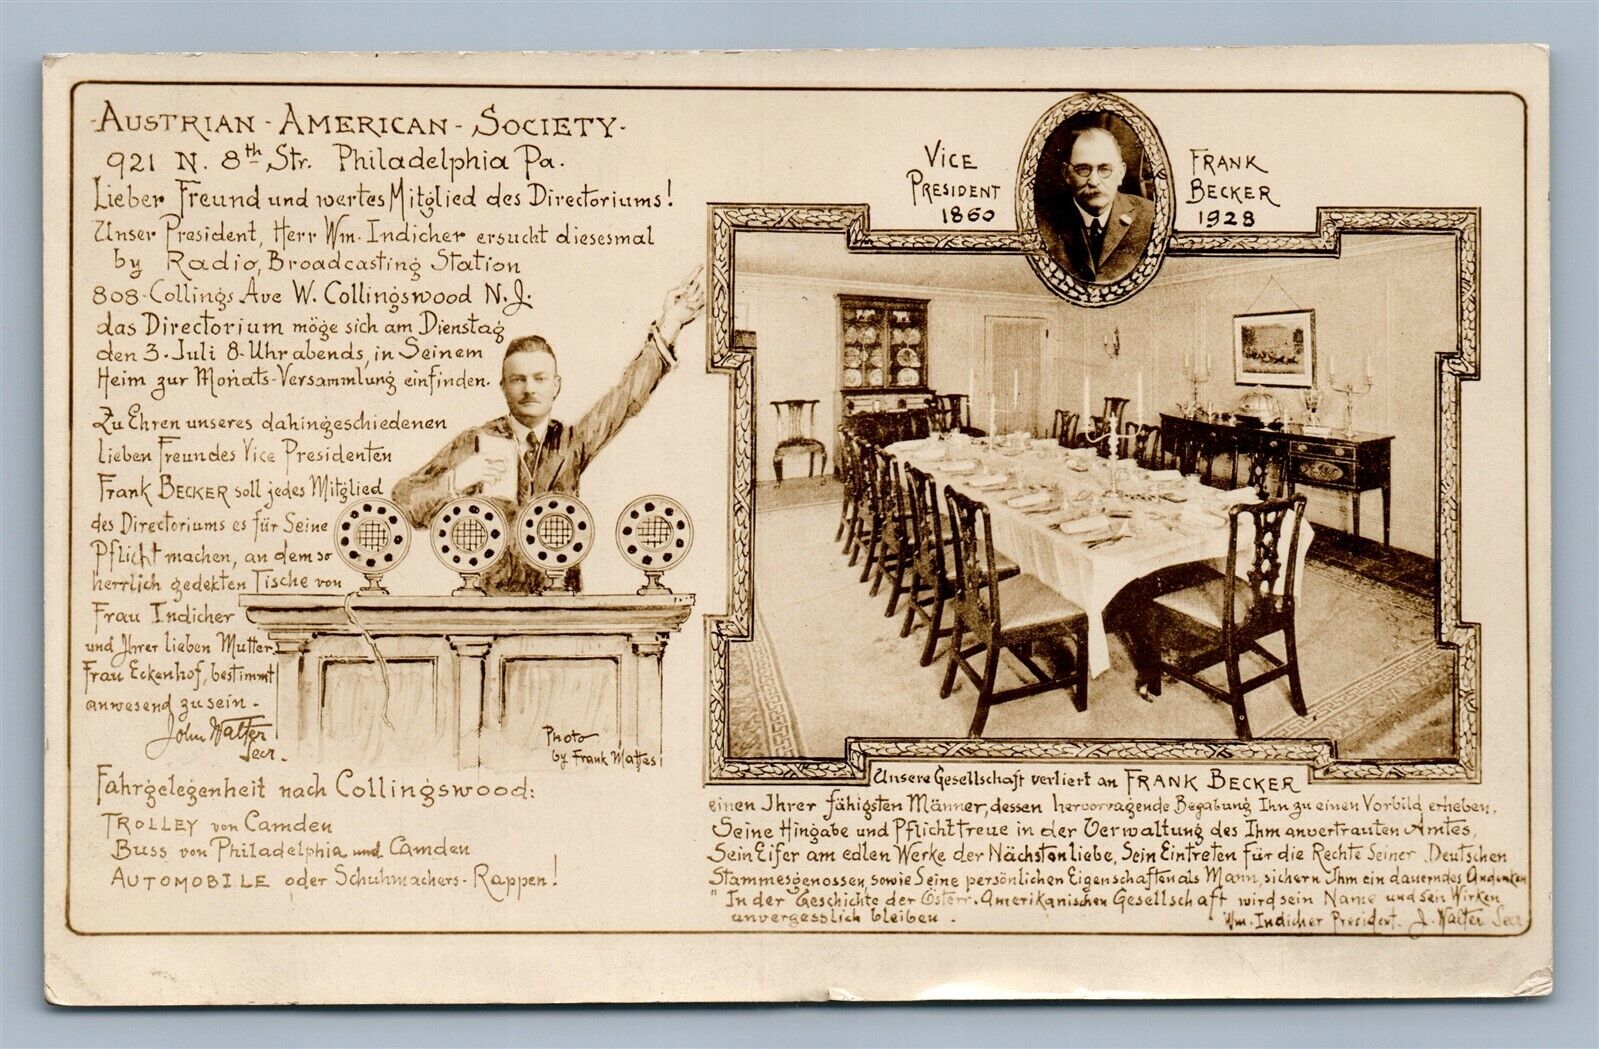 -AUSTRIAN-AMERICAN-SOCIETY-
921 N. 8th Str. Philadelphia Pa.
Lieber Freund und wertes Mitglied des Directoriums!
Unser President, Herr Wm. Indicher ersucht diesesmal
by Radio, Broadcasting Station
808-Collings Ave W. Collingswood N.J.
das Directorium möge sich am Dienstag
den 3. Juli 8-Uhr abends, in Seinem
Heim zur Monats-Versammlung einfinden.
Zu Ehren unseres dahingeschiedenen
lieben Freundes Vice Presidenten
Frank BECKER soll jedes Mitglied
des Directoriums es für Seine
Pflicht machen, an dem so
herrlich gedekten Tische von
Frau Indicher
und Ihrer lieben Mutter,
Frau Eckenhof, bestimmt
anwesend zu sein.-
John Walter
Secr.
Photo
by Frank Mattes
Fahrgelegenheit nach Collingswood:
TROLLEY von Camden
Buss von Philadelphia und Camden
AUTOMOBILE oder Schuhmachers-Rappen!
VICE
PRESIDENT
1860
FRANK
BECKER
1928
Unsere Gesellschaft verliert an FRANK BECKER
einen Ihrer fähigsten Männer, dessen hervorragende Begabung Ihn zu einen Vorbild erheben.
Seine Hingabe und Pflichttreue in der Verwaltung des Ihm anvertrauten Amtes,
Sein Eifer am edlen Werke der Nächstenliebe, Sein Eintreten für die Rechte Seiner Deutschen
Stammesgenossen, sowie Seine persönlichen Eigenschaften als Mann, sichern Ihm ein dauerndes Andenken
"In der Geschichte der Österr. Amerikanischen Gesellschaft wird sein Name und sein Wirken
unvergesslich bleiben.-
Wm. Indicher President. J. Walter Secr.